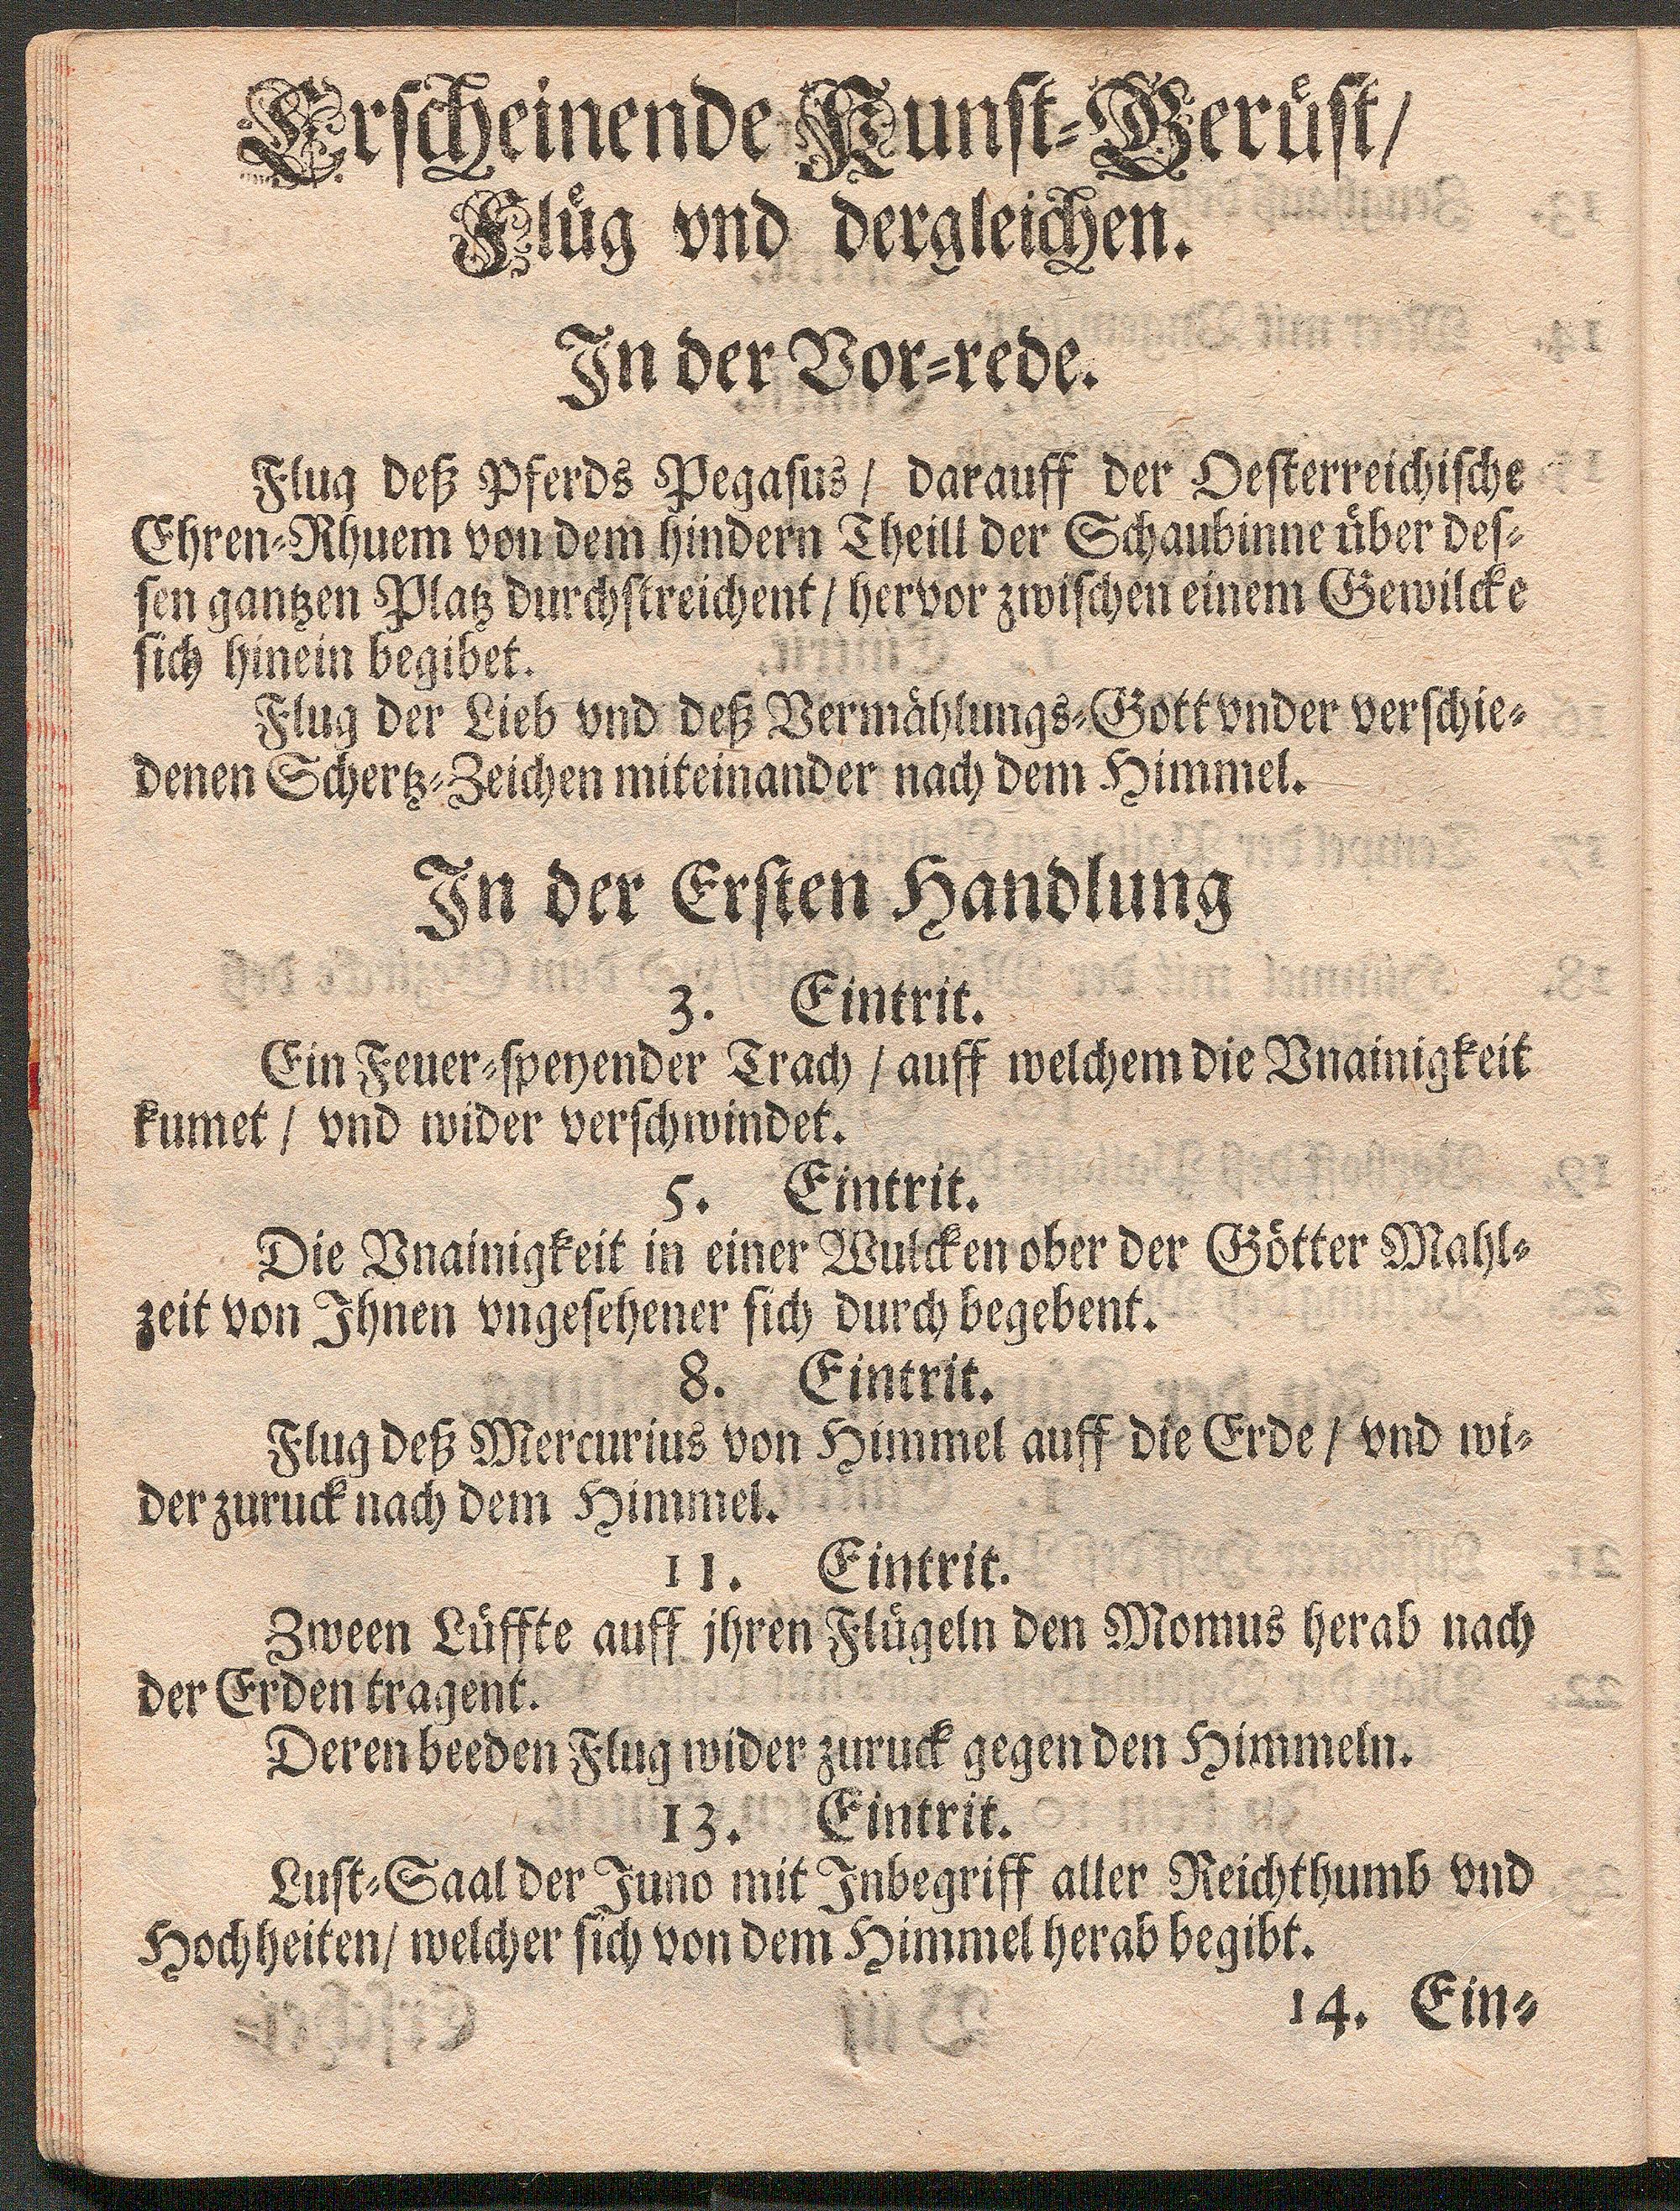 Erscheinende Kunst-Gerüst/
Flüg vnd dergleichen.
In der Vor-rede.
Flug deß Pferds Pegasus/ darauff der Oesterreichische
Ehren-Rhuem von dem hindern Theill der Schaubinne über des-
sen gantzen Platz durchstreichent/ hervor zwischen einem Gewilcke
sich hinein begibet.
Flug der Lieb vnd deß Vermählungs-Gott vnder verschie-
denen Schertz-Zeichen miteinander nach dem Himmel.
In der Ersten Handlung
3. Eintrit.
Ein Feuer-speyender Trach / auff welchem die Vnainigkeit
kumet / vnd wider verschwindet.
5. Eintrit.
Die Vnainigkeit in einer Wulcken ober der Götter Mahl-
zeit von Ihnen vngesehener sich durch begebent.
8. Eintrit.
Flug deß Mercurius von Himmel auff die Erde / vnd wi-
der zuruck nach dem Himmel.
11. Eintrit.
Zween Lüffte auff jhren Flügeln den Momus herab nach
der Erden tragent.
Deren beeden Flug wider zuruck gegen den Himmeln.
13. Eintrit.
Lust-Saal der Juno mit Inbegriff aller Reichthumb vnd
Hochheiten/ welcher sich von dem Himmel herab begibt.
14. Ein-